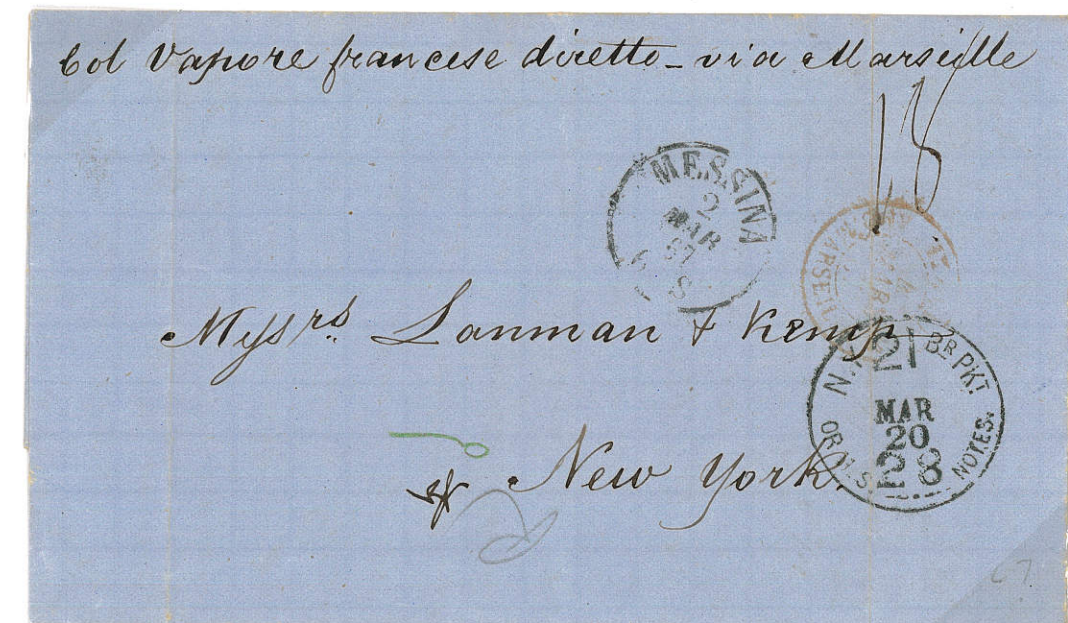 Col Vapore francese diretto - via Marseille
18
MESSINA
2
MAR
67
S
MARSEILLE
Messrs. Lanman & Kemp
N.Y. 21 BR PKT.
MAR
20
OR U.S. 28 NOTES.
New York.
67